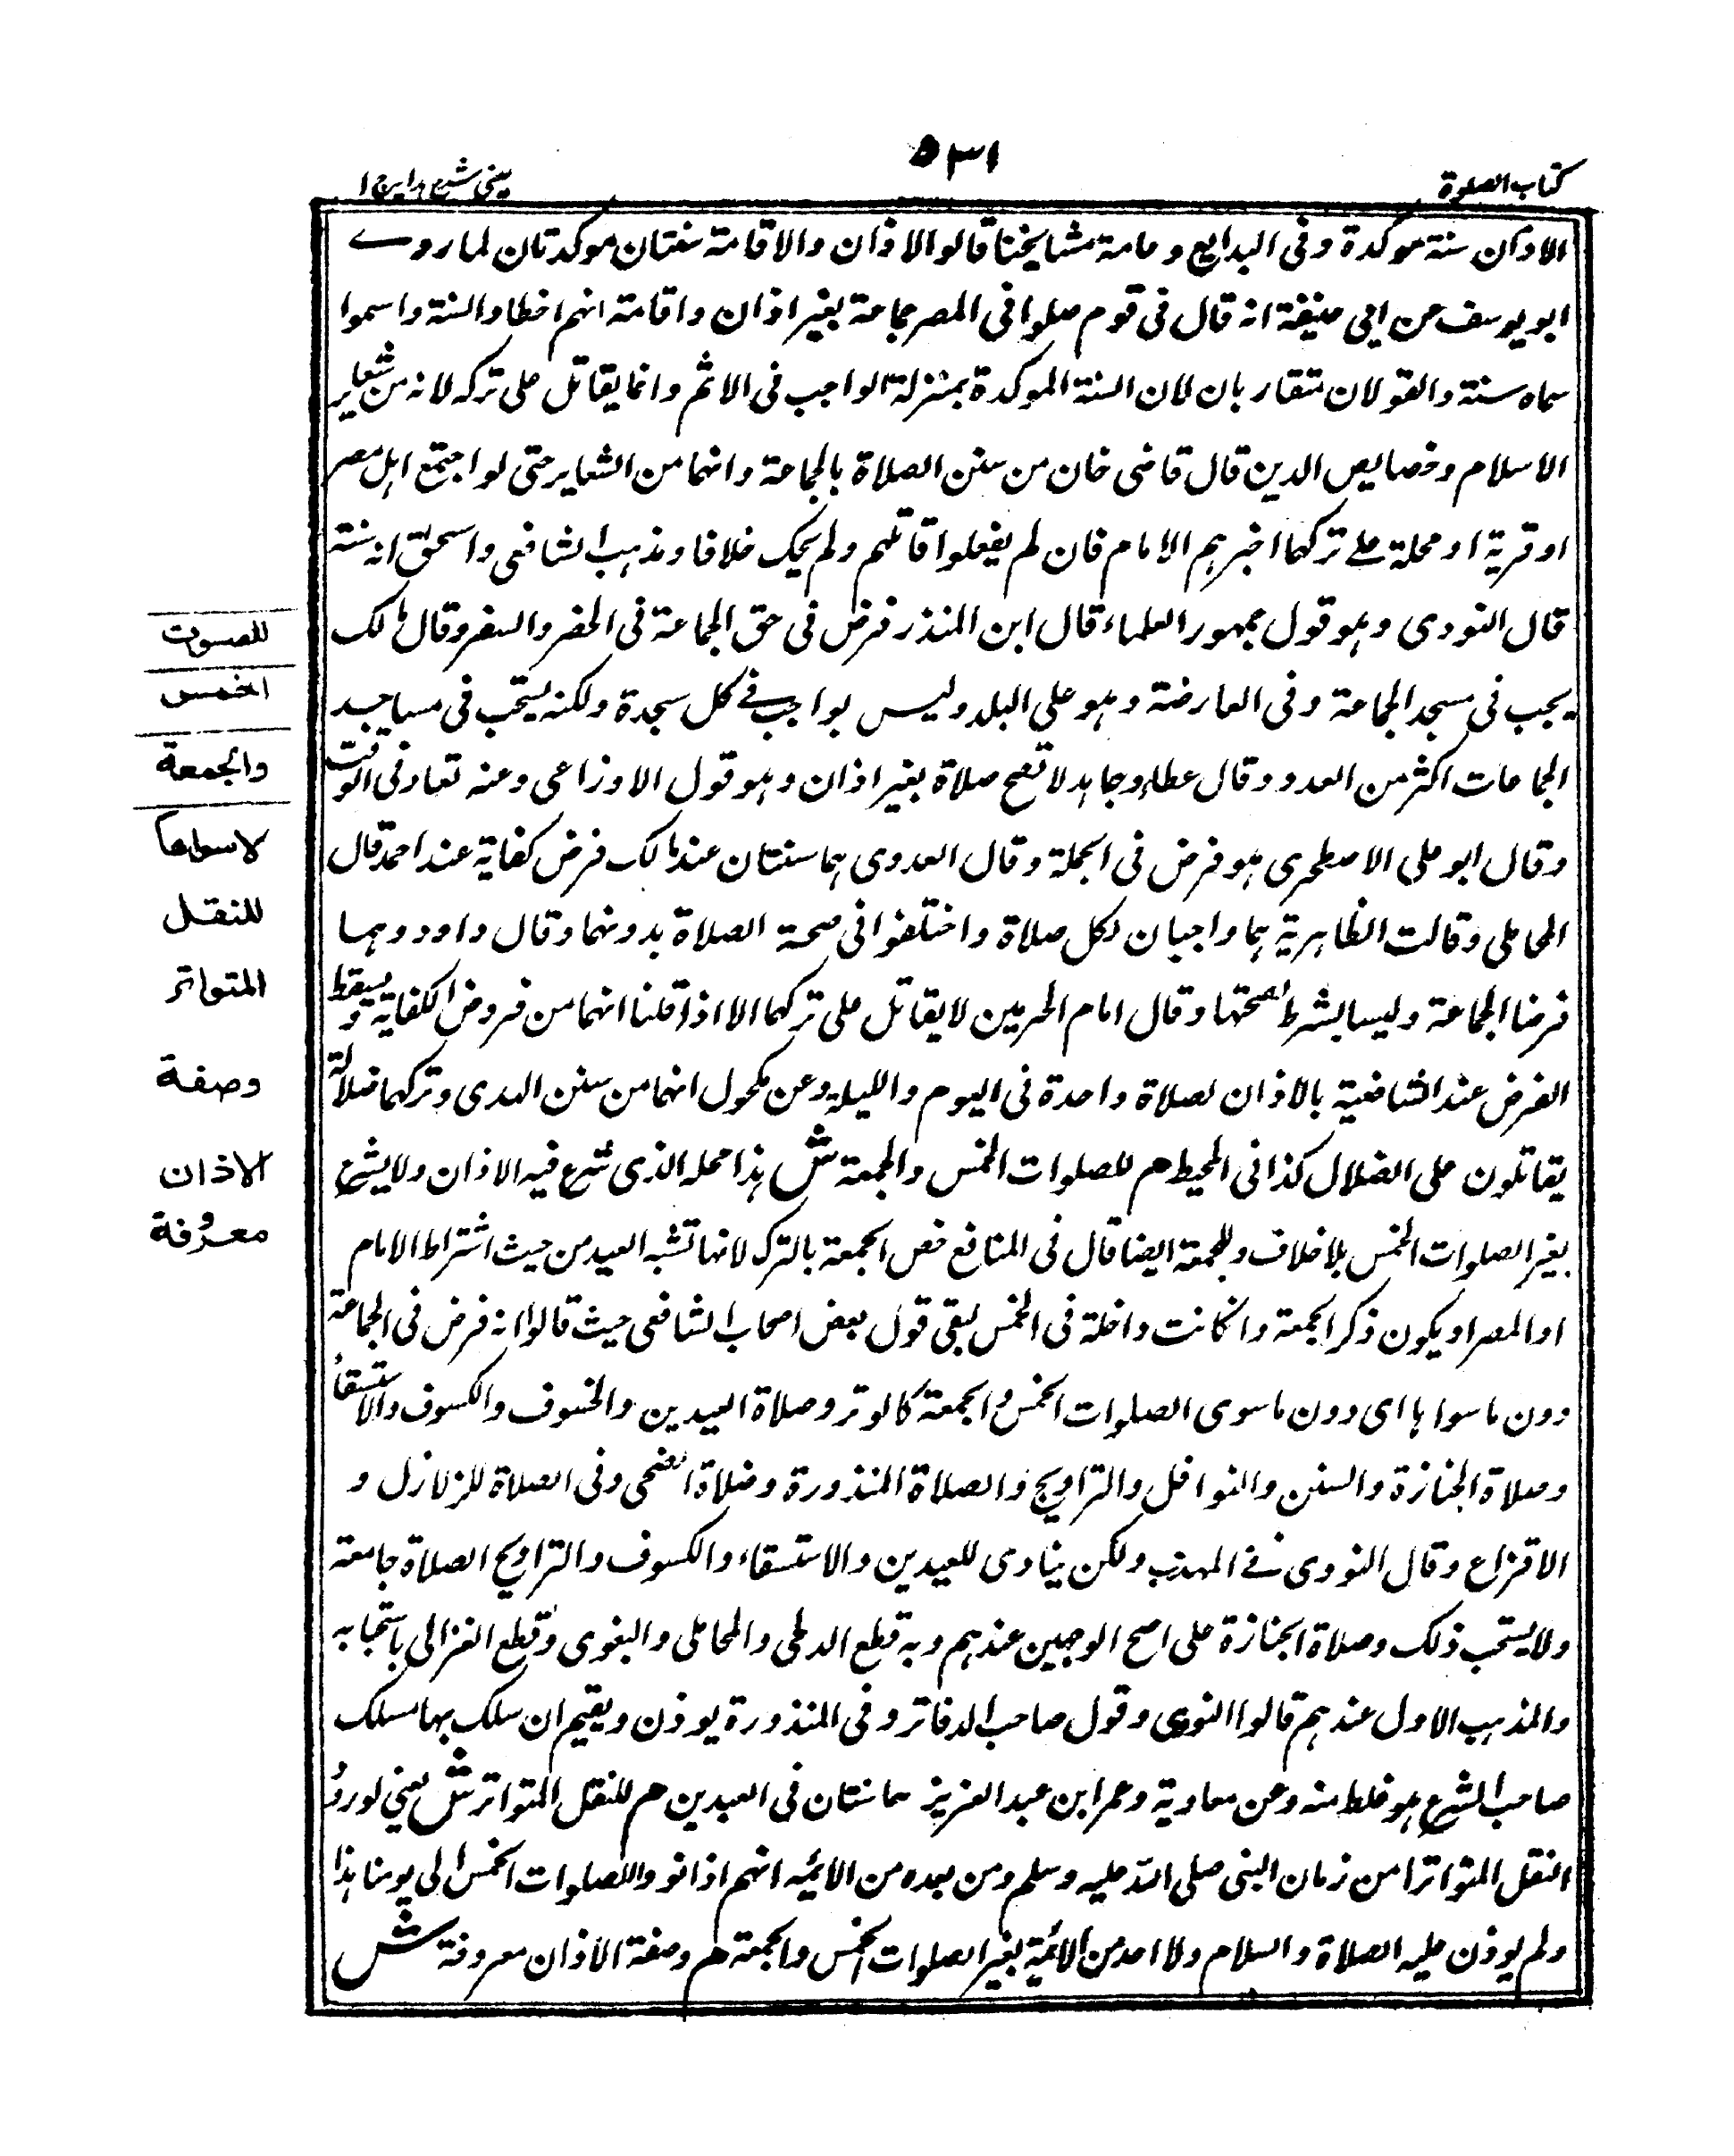 كتاب الصلوة
٥٣١
عينى شرح هدايه ج ا
الاذان سنة موكدة وفى البدايع وعامة مشايخنا قالوا الاذان والاقامة سنتان موكدتان لما روے
ابو يوسف عن ابى حنيفة انه قال فى قوم صلوا فى المصر جماعة بغير اذان واقامة انهم اخطاوا السنة واسموا
سماه سنة والقولان متقاربان لان السنة الموكدة بمنزلة الواجب فى الاثم وانما يقاتل على تركه لانه من شعاير
الاسلام وخصايص الدين قال قاضى خان من سنن الصلاة بالجماعة وانهما من الشعاير حتى لو اجتمع اهل مصر
او قرية او محلة على تركهما اخبرهم الامام فان لم يفعلوا قاتلهم ولم يحك خلافا ومذهب الشافعى واسحق انه سنة
قال النووى وهو قول جمهور العلماء قال ابن المنذر فرض فى حق الجماعة فى الحضر والسفر وقال مالك
يجب فى مسجد الجماعة وفى العارضة وهو على البلد وليس بواجب فے كل سجدة ولكنه يستحب فى مساجد
الجماعات اكثر من العدد وقال عطاء وجاهد لا تصح صلاة بغير اذان وهو قول الاوزاعى وعنه تعاد فى الوقت
وقال ابو على الاصطخرى هو فرض فى الجملة وقال العدوى هما سنتان عند مالك فرض كفاية عند احمد قال
المحاملى وقالت الظاهرية هما واجبان لكل صلاة واختلفوا فى صحة الصلاة بدونهما وقال داود وهما
فرضا الجماعة وليسا بشرط لصحتها وقال امام الحرمين لا يقاتل على تركهما الا اذا قلنا انهما من فروض الكفاية ويسقط
الفرض عند الشافعية بالاذان لصلاة واحدة فى اليوم والليلة وعن مكحول انهما من سنن الهدى وتركهما ضلالة
يقاتلون على الضلال كذا فى المحيط هم للصلوات الخمس والجمعة ش هذا محله الذى شرع فيه الاذان ولا يشرع
بغير الصلوات الخمس بلا خلاف وللجمعة ايضا قال فى المنافع خص الجمعة بالترك لانها تشبه العيد من حيث اشتراط الامام
او المصر او يكون ذكر الجمعة وان كانت داخلة فى الخمس لبقى قول بعض اصحاب الشافعى حيث قالوا انه فرض فى الجماعة
دون ما سواها اى دون ما سوى الصلوات الخمس والجمعة كالوتر وصلاة العيدين والخسوف والكسوف والاستسقاء
وصلاة الجنازة والسنن والنوافل والتراويح والصلاة المنذورة وصلاة الضحى وفى الصلاة للزلازل و
الافزاع وقال النووى فے المهذب ولكن ينادى للعيدين والاستسقاء والكسوف والتراويح الصلاة جامعة
ولا يستحب ذلك وصلاة الجنازة على اصح الوجهين عندهم وبه قطع الدطى والمحاملى والبغوى وقطع الغزالى باستحبابه
والمذهب الاول عندهم قالوا النووى وقول صاحب الدفاتر وفى المنذورة يوذن ويقيم ان سلك بها مسلك
صاحب الشرع هو غلط منه وعن معاوية وعمر ابن عبد العزيز سماسنتان فى العيدين هم للنقل المتواتر ش يعنى لورود
النقل المتواتر من زمان النبى صلى الله عليه وسلم ومن بعده من الائمه انهم اذانوا للصلوات الخمس الى يومنا هذا
ولم يوذن عليه الصلاة والسلام ولا احد من الائمة بغير الصلوات الخمس والجمعة هم وصفة الاذان معروفة ش
للصلوت
الخمس
والجمعة
لاسواها
للنقل
المتواتر
وصفة
الاذان
معروفة